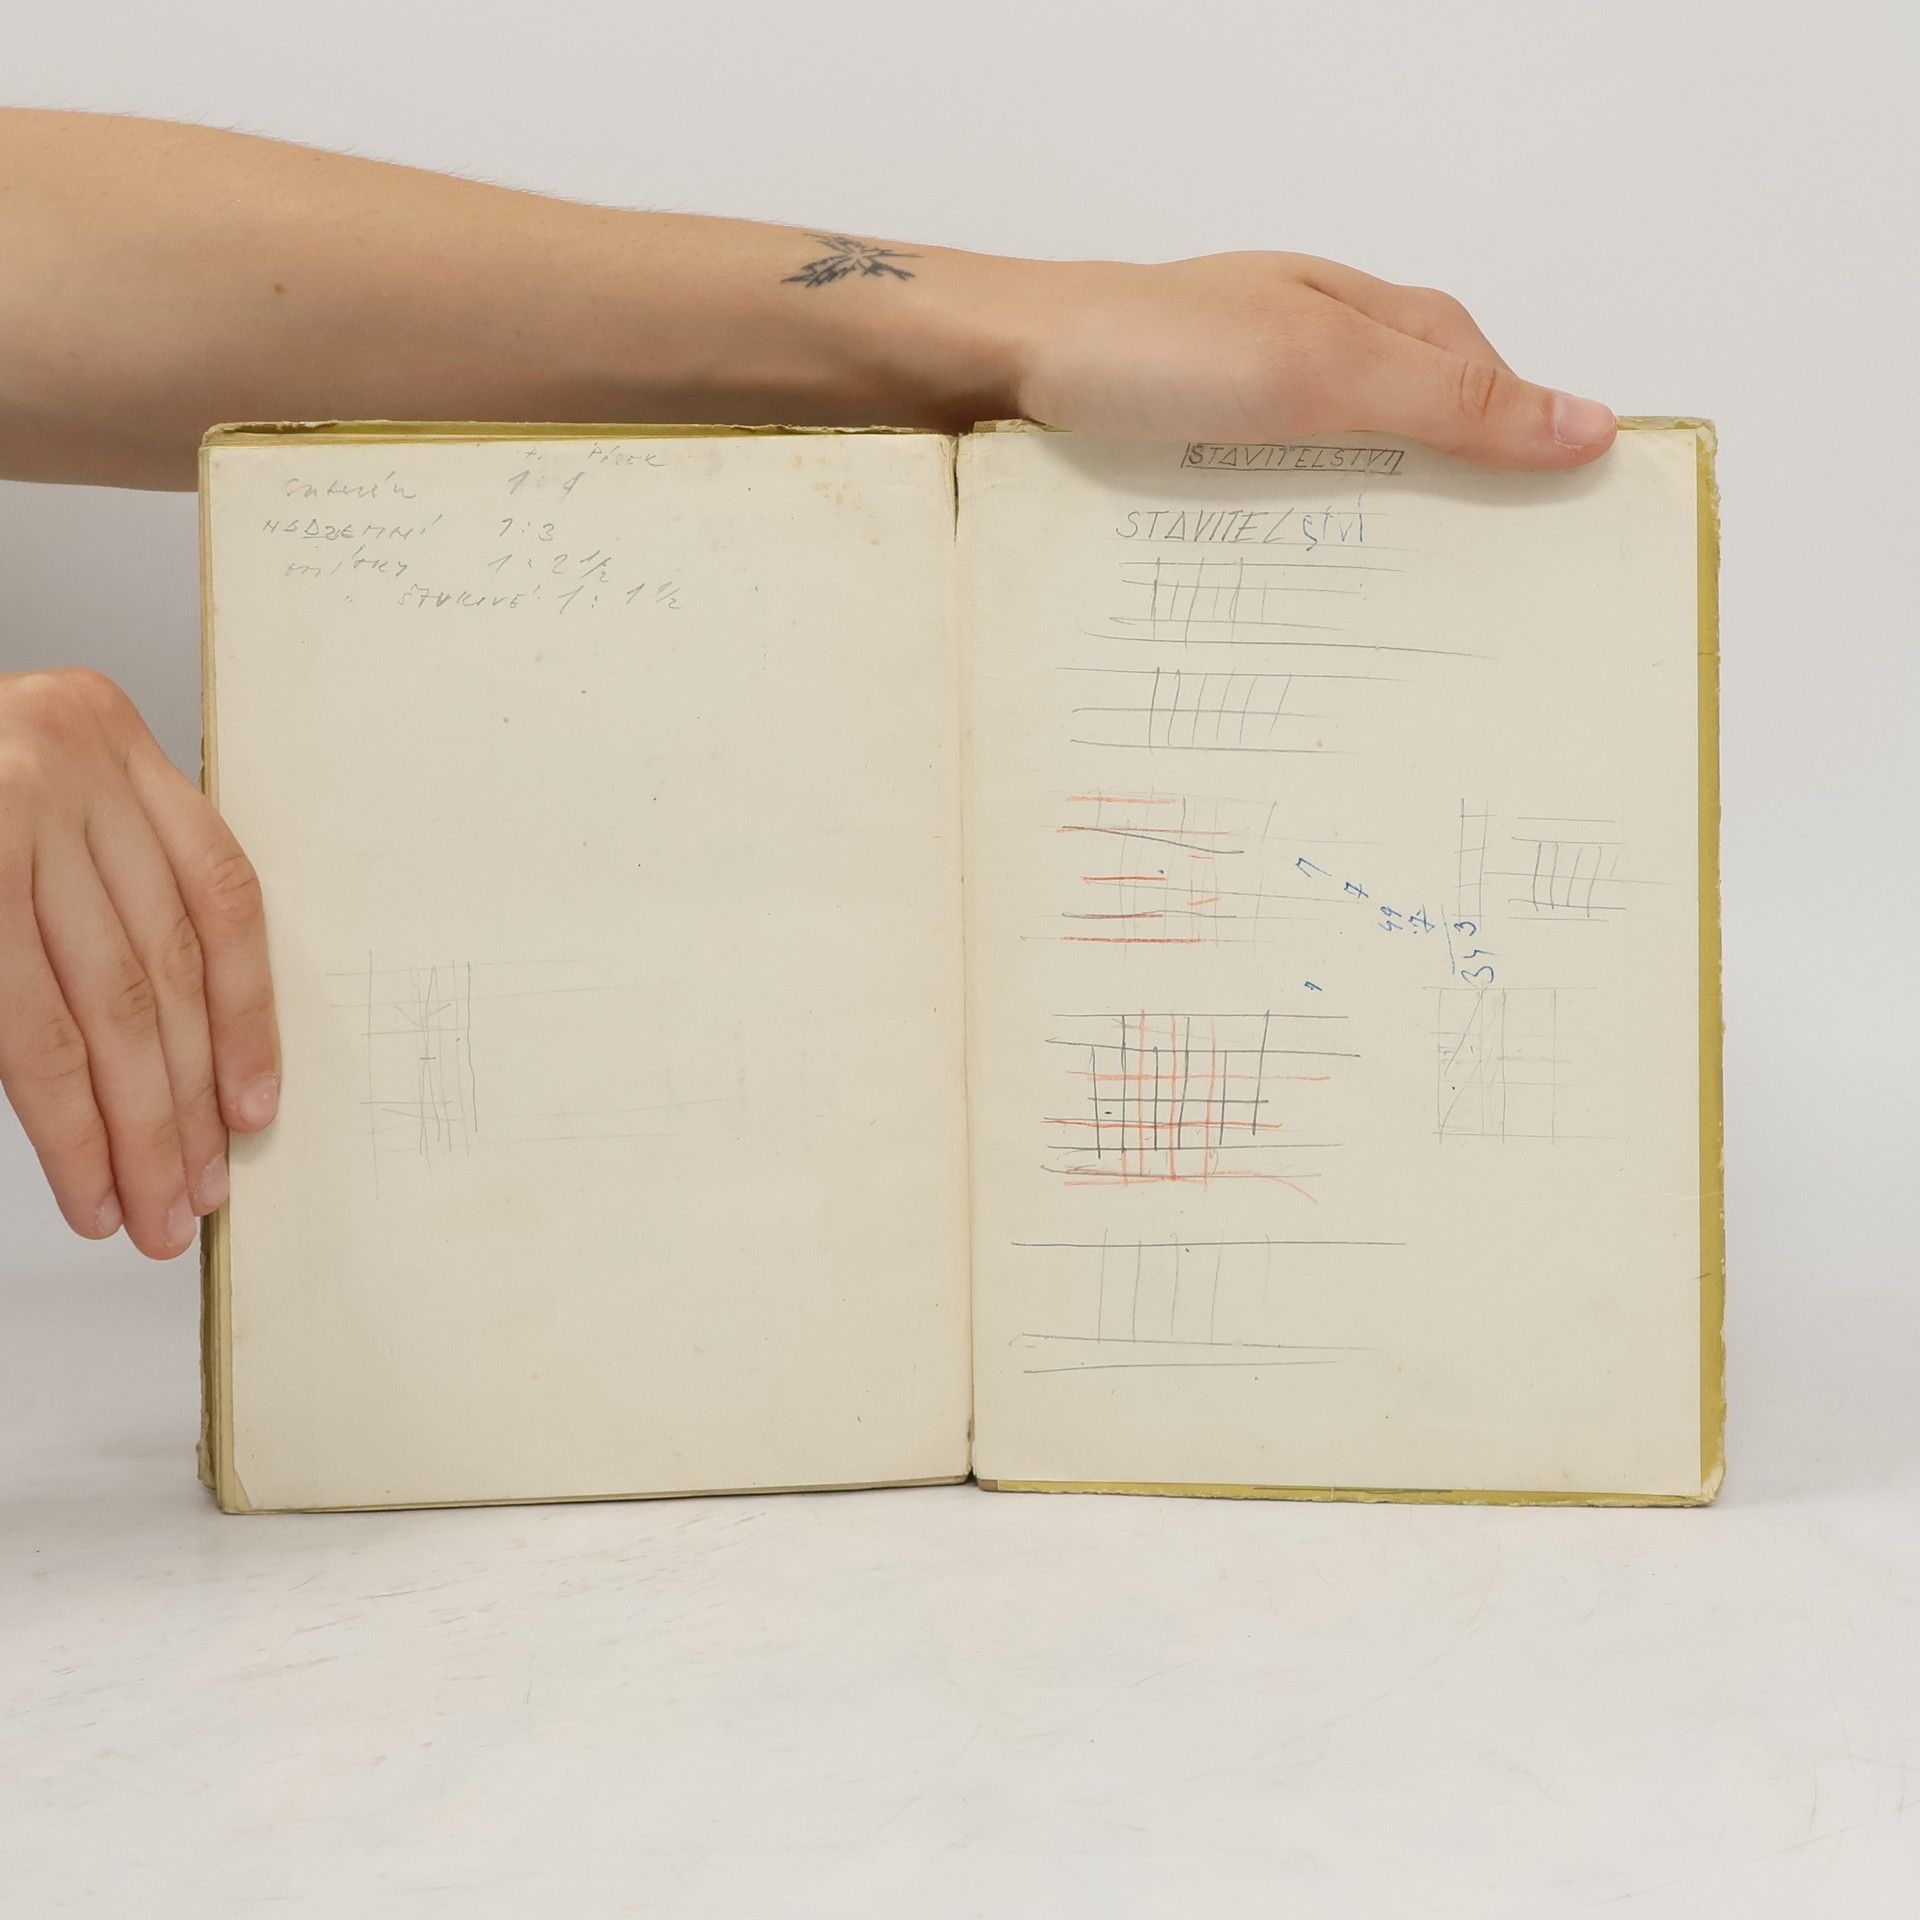 P. PÍSEK
Suterén 1:4
NADZEMNÍ 1:3
OMÍTKY 1:2 1/2
" ŠTUKOVÉ 1:1 1/2
STAVITELSTVÍ
STAVITELství
7
7
49
.7
343